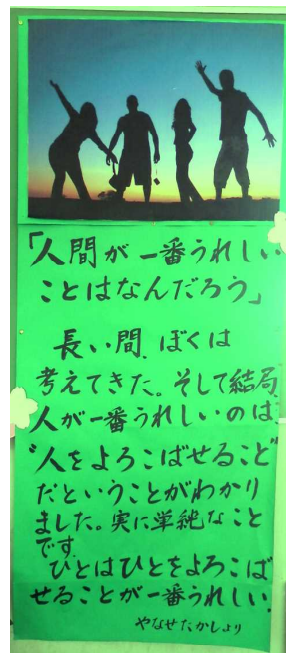 「人間が一番うれしい
ことはなんだろう」
長い間、ぼくは
考えてきた。そして結局、
人が一番うれしいのは、
"人をよろこばせること"
だということがわかり
ました。実に単純なこと
です。
ひとはひとをよろこば
せることが一番うれしい。
やなせたかしより